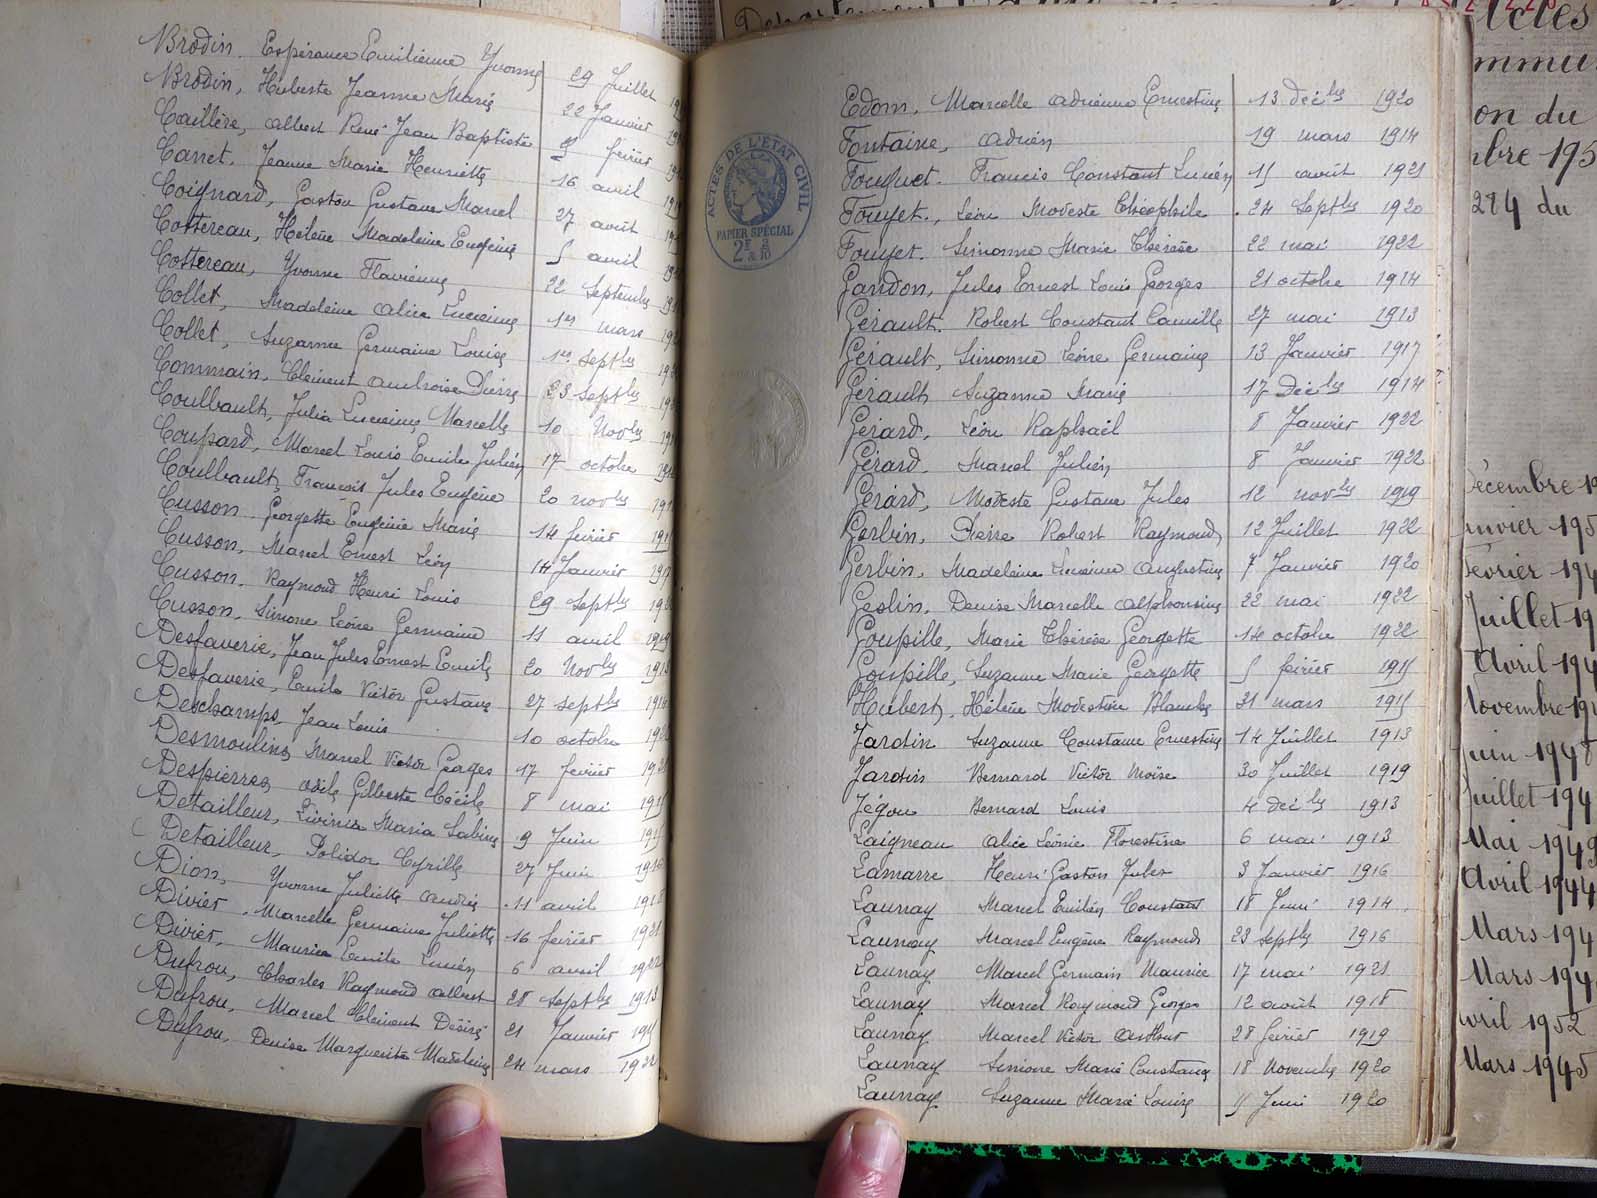 Brodin. Espérance Emilienne Yvonne 29 Juillet
Brodin, Huberte Jeanne Marie 22 Janvier
Caillère, Albert René Jean Baptiste février
Carret, Jeanne Marie Henriette 16 avril
Coignard, Gaston Gustave Marcel 27 août
Cottereau, Hélène Madeleine Eugénie 5 avril
Cottereau, Yvonne Flavienne 22 Septembre
Collet, Madeleine Alice Lucienne 1er mars
Collet, Suzanne Germaine Louise 1er Septbre
Commain, Clément Ambroise Pierre 23 Septbre
Coulbault, Julia Lucienne Marcelle 10 Novbre
Coupard, Marcel Louis Emile Julien 17 octobre
Coulbault, François Jules Eugène 20 novbre
Cusson. Georgette Eugénie Marie 14 février
Cusson, Marcel Ernest Léon 14 Janvier
Cusson. Raymond Henri Louis 29 Septbre
Cusson, Simone Léone Germaine 11 avril 1919
Desfaverie, Jean Jules Ernest Emile 20 Novbre
Desfaverie, Emile Victor Gustave 27 septbre 1914
Deschamps, Jean Louis 10 octobre
Desmoulins, Marcel Victor Georges 17 février
Despierres, Odile Gilberte Cécile 8 mai
Detailleur, Livinia Maria Sabine 9 Juin
Detailleur, Polidor Cyrille 27 Juin 1916
Dion, Yvonne Juliette Andrée 11 avril 1918
Divier, Marcelle Germaine Juliette 16 février 1921
Divier, Maurice Emile Lucien 6 avril 1922
Dufrou, Charles Raymond Albert 28 septbre 1913
Dufrou, Marcel Clément Désiré 21 Janvier 1915
Dufrou, Denise Marguerite Madeleine 24 mars 1922
ACTES DE L'ETAT CIVIL
PAPIER SPÉCIAL
Edom, Marcelle Adrienne Ernestine 13 décbre 1920
Fontaine, Adrien 19 mars 1914
Fouquet. Francis Constant Lucien 15 août 1921
Fouyet., Léon Modeste Théophile 24 Septbre 1920
Fouyet. Simonne Marie Thérèse 22 mai 1922
Gandon, Jules Ernest Louis Georges 21 octobre 1914
Gérault. Robert Constant Camille 27 mai 1913
Gérault, Simonne Léone Germaine 13 Janvier 1917
Gérault Suzanne Marie 17 Décbre 1914
Gérard, Léon Raphaël 8 Janvier 1922
Gérard. Marcel Julien 8 Janvier 1922
Gérard, Modeste Gustave Jules 12 novbre 1919
Gerbin, Pierre Robert Raymond 12 Juillet 1922
Gerbin, Madeleine Lucienne Augustine 7 Janvier 1920
Geslin, Denise Marcelle Alphonsine 22 mai 1922
Goupille, Marie Thérèse Georgette 14 octobre 1922
Goupille, Suzanne Marie Georgette 5 février 1915
Hubert, Hélène Modestine Blanche 31 mars 1915
Jardin Suzanne Constance Ernestine 14 Juillet 1913
Jardin Bernard Victor Moïse 30 Juillet 1919
Jégou Bernard Louis 4 décbre 1913
Laigneau Alice Léonie Florestine 6 mai 1913
Lamarre Henri Gaston Jules 3 Janvier 1916
Launay Marcel Emilien Constant 18 Juin 1914
Launay Marcel Eugène Raymond 23 Septbre 1916
Launay Marcel Germain Maurice 17 mai 1921
Launay Marcel Raymond Georges 12 août 1918
Launay Marcel Victor Arthur 28 février 1919
Launay Simone Marie Constance 18 Novembre 1920
Launay Suzanne Marie Louise Juin 1920
Actes
on du
bre 195
284 du
écembre 19
anvier 195
évrier 194
Juillet 19
Avril 194
Novembre 19
juin 1948
juillet 194
Mai 1949
Avril 1944
Mars 194
Mars 194
vril 1952
Mars 1945